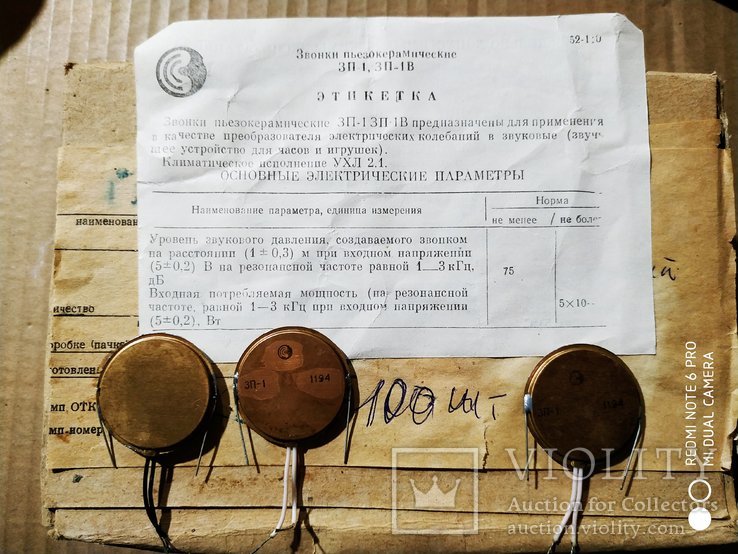 52-110
Звонки пьезокерамические
ЗП-1, ЗП-1В
ЭТИКЕТКА
Звонки пьезокерамические ЗП-1 ЗП-1В предназначены для применения
в качестве преобразователя электрических колебаний в звуковые (звуч
щее устройство для часов и игрушек).
Климатическое исполнение УХЛ 2.1.
ОСНОВНЫЕ ЭЛЕКТРИЧЕСКИЕ ПАРАМЕТРЫ
Наименование параметра, единица измерения
Норма
не менее / не более
Уровень звукового давления, создаваемого звонком
на расстоянии (1 ± 0,3) м при входном напряжении
(5±0.2) В на резонансной частоте равной 1—3 кГц,
дБ
75
Входная потребляемая мощность (на резонансной
частоте, равной 1—3 кГц при входном напряжении
(5±0,2), Вт
5×10-
наименован
ичество
оробке (пачк
готовлен
мп ОТК
мп-номер
ЗП-1 1194
100 шт
ЗП-1 1194
VIOLITY
Auction for Collectors
auction.violity.com
REDMI NOTE 6 PRO
MI DUAL CAMERA